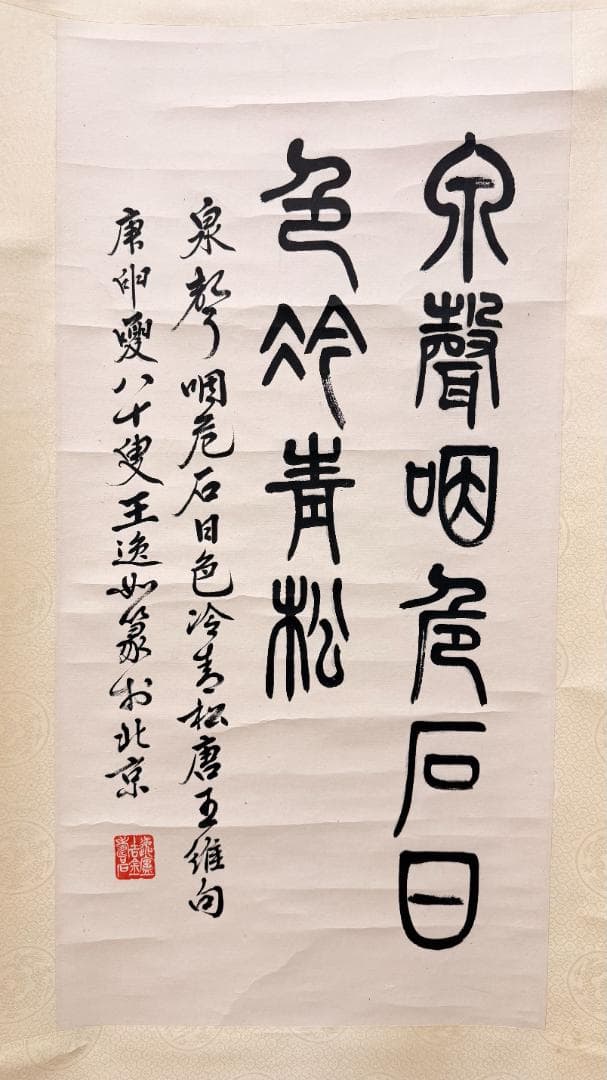 泉聲咽危石日
色冷青松
泉聲咽危石日色冷青松唐王維句
八十叟王逸如篆於北京